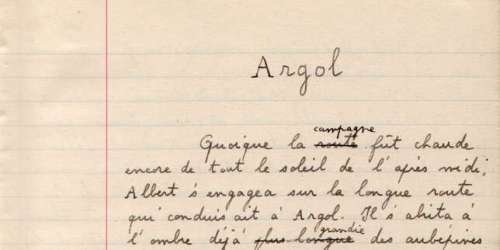 Argol
campagne
Quoique la route fût chaude
encore de tout le soleil de l'après midi,
Albert s'engagea sur la longue route
qui conduisait à Argol. Il s'abrita à
grandie
l'ombre déjà plus longue des aubépines